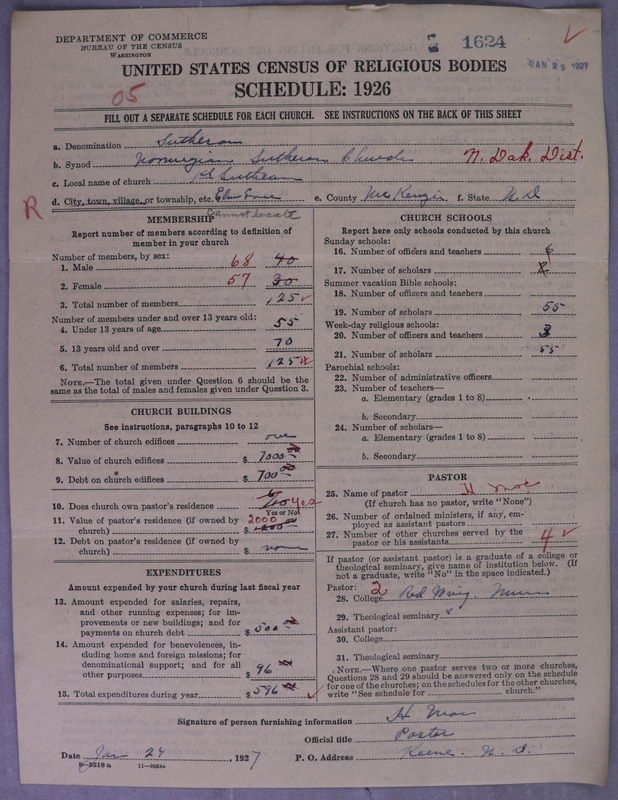 DEPARTMENT OF COMMERCE
BUREAU OF THE CENSUS
WASHINGTON
1624
JAN 29 1927
UNITED STATES CENSUS OF RELIGIOUS BODIES
SCHEDULE: 1926
05
FILL OUT A SEPARATE SCHEDULE FOR EACH CHURCH. SEE INSTRUCTIONS ON THE BACK OF THIS SHEET
a. Denomination Lutheran
b. Synod Norwegian Lutheran Church N. Dak. Dist.
c. Local name of church 1st Lutheran
d. City, town, village, or township, etc. e. County McKenzie f. State N D
R
Cannot locate
MEMBERSHIP
Report number of members according to definition of member in your church
Number of members, by sex:
1. Male 68 40
2. Female 57 30
3. Total number of members 125
Number of members under and over 13 years old:
4. Under 13 years of age 55
5. 13 years old and over 70
6. Total number of members 125
NOTE.—The total given under Question 6 should be the same as the total of males and females given under Question 3.
CHURCH BUILDINGS
See instructions, paragraphs 10 to 12
7. Number of church edifices one
8. Value of church edifices $ 7000 00
9. Debt on church edifices $ 700 00
10. Does church own pastor's residence Yes
Yes or No
11. Value of pastor's residence (if owned by church) $ 2000
12. Debt on pastor's residence (if owned by church) $ none
EXPENDITURES
Amount expended by your church during last fiscal year
13. Amount expended for salaries, repairs, and other running expenses; for improvements or new buildings; and for payments on church debt $ 500
14. Amount expended for benevolences, including home and foreign missions; for denominational support; and for all other purposes $ 96
15. Total expenditures during year $ 596
CHURCH SCHOOLS
Report here only schools conducted by this church
Sunday schools:
16. Number of officers and teachers
17. Number of scholars
Summer vacation Bible schools:
18. Number of officers and teachers
19. Number of scholars 55
Week-day religious schools:
20. Number of officers and teachers 3
21. Number of scholars 55
Parochial schools:
22. Number of administrative officers
23. Number of teachers—
a. Elementary (grades 1 to 8)
b. Secondary
24. Number of scholars—
a. Elementary (grades 1 to 8)
b. Secondary
PASTOR
25. Name of pastor H Moe
(If church has no pastor, write "None")
26. Number of ordained ministers, if any, employed as assistant pastors
27. Number of other churches served by the pastor or his assistants 4
If pastor (or assistant pastor) is a graduate of a college or theological seminary, give name of institution below. (If not a graduate, write "No" in the space indicated.)
Pastor: 2
28. College Red Wing, Minn
29. Theological seminary
Assistant pastor:
30. College
31. Theological seminary
NOTE.—Where one pastor serves two or more churches, Questions 28 and 29 should be answered only on the schedule for one of the churches; on the schedules for the other churches, write "See schedule for church."
Signature of person furnishing information H Moe
Official title Pastor
Date Jan 24, 1927 P. O. Address Keene N. D.
9-5518a 11-9554a